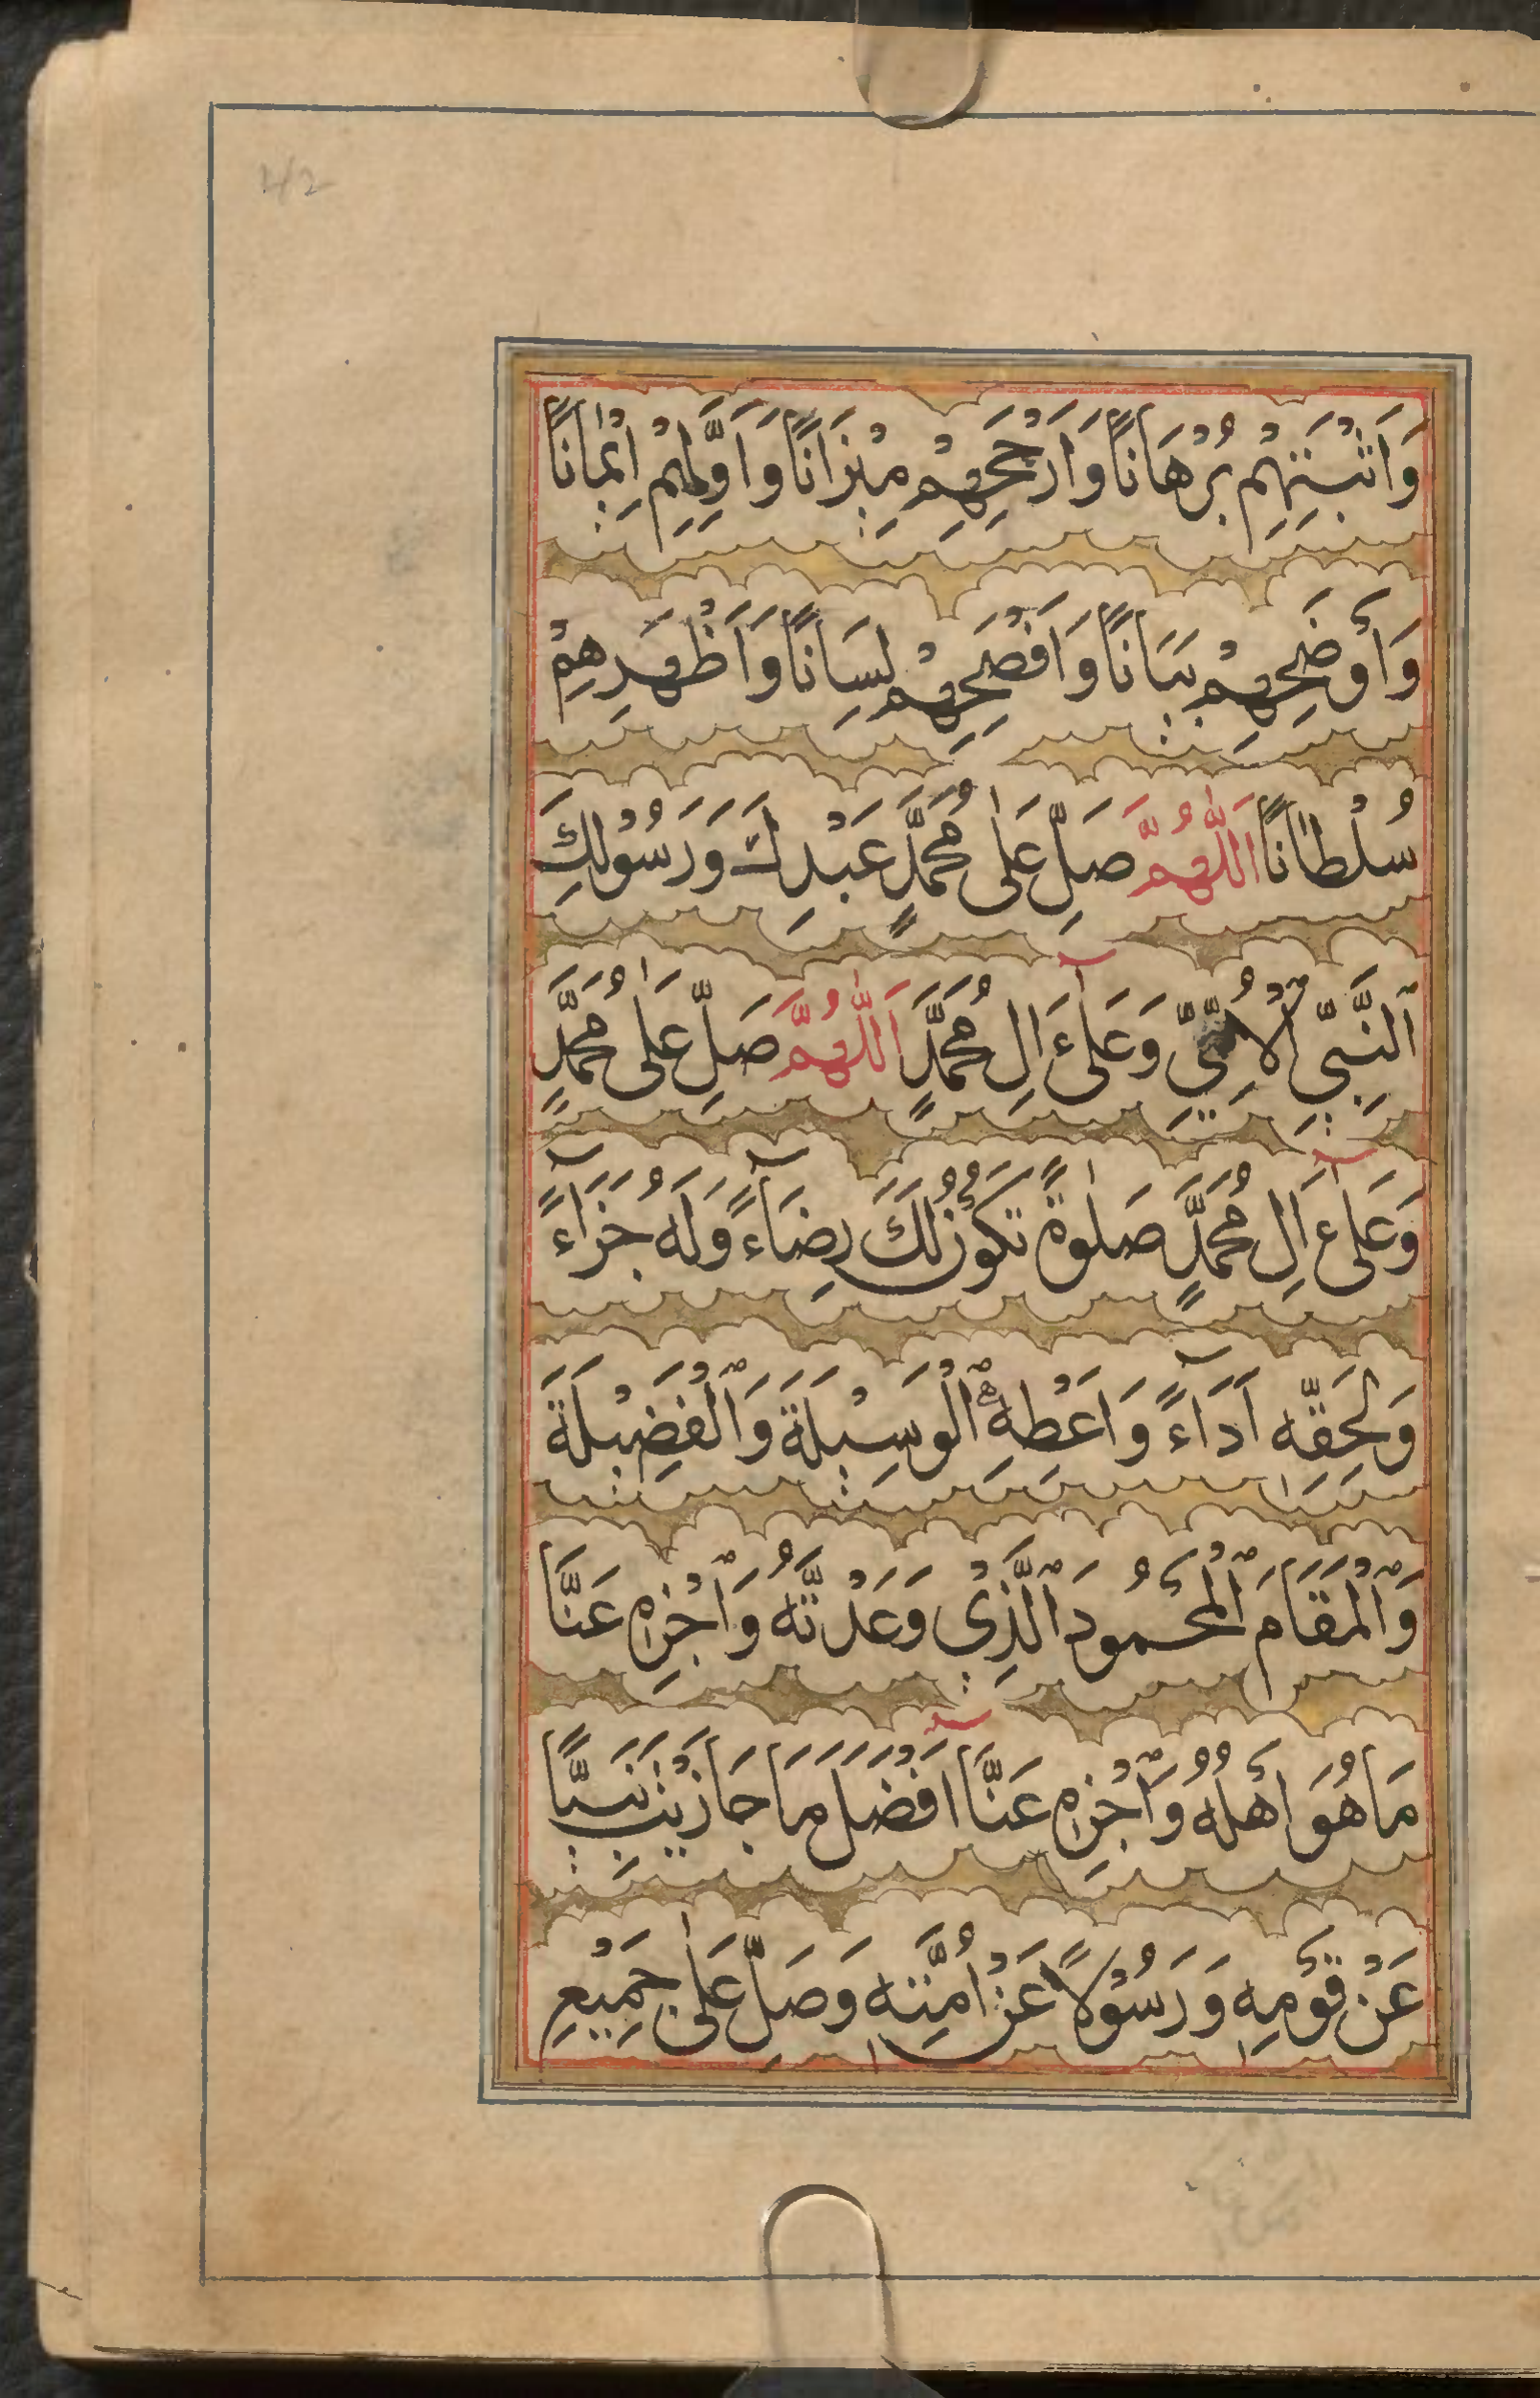 42
وَاَثْبَتِهِمْ بُرْهَانًا وَاَرْجَحِهِمْ مِيْزَانًا وَاَوَّلِهِمْ اِيْمَانًا
وَاَوْضَحِهِمْ بَيَانًا وَاَفْصَحِهِمْ لِسَانًا وَاَظْهَرِهِمْ
سُلْطَانًا اَللّٰهُمَّ صَلِّ عَلٰى مُحَمَّدٍ عَبْدِكَ وَرَسُوْلِكَ
ٱلنَّبِيِّ ٱلْاُمِّيِّ وَعَلٰٓى اٰلِ مُحَمَّدٍ اَللّٰهُمَّ صَلِّ عَلٰى مُحَمَّدٍ
وَعَلٰٓى اٰلِ مُحَمَّدٍ صَلٰوةً تَكُوْنُ لَكَ رِضَآءً وَلَهُ جَزَآءً
وَلِحَقِّهٖ اَدَآءً وَاَعْطِهِ ٱلْوَسِيْلَةَ وَٱلْفَضِيْلَةَ
وَٱلْمَقَامَ ٱلْمَحْمُودَ ٱلَّذِيْ وَعَدْتَّهُ وَٱجْزِهِ عَنَّا
مَا هُوَ اَهْلُهُ وَٱجْزِهِ عَنَّآ اَفْضَلَ مَا جَازَيْتَ نَبِيًّا
عَنْ قَوْمِهٖ وَرَسُوْلًا عَنْ اُمَّتِهٖ وَصَلِّ عَلٰى جَمِيْعِ